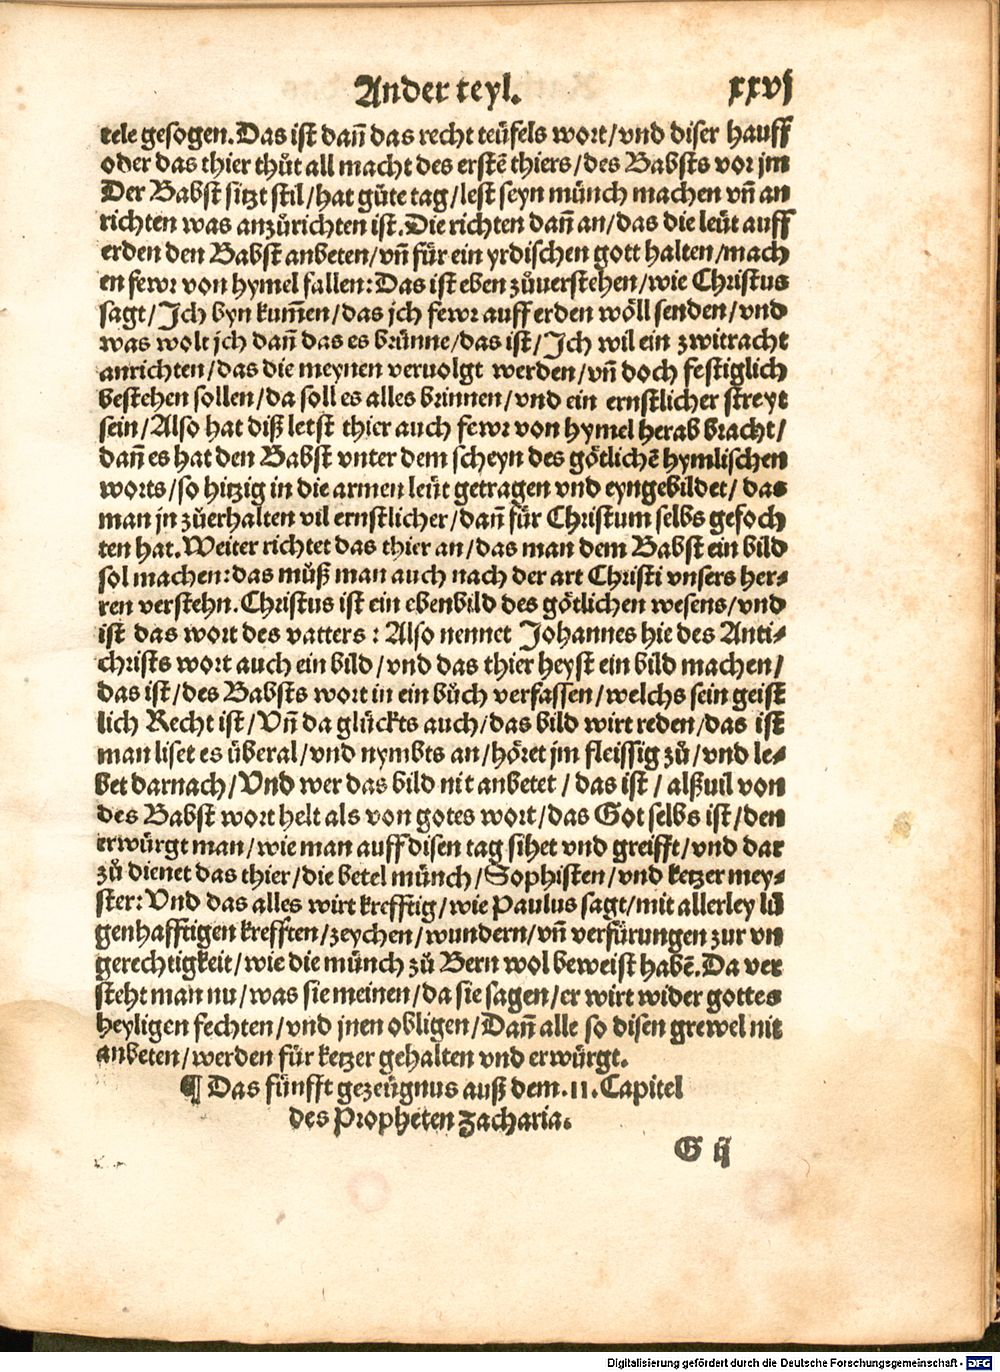 Ander teyl. xxvj
tele gesogen. Das ist dañ das recht teüfels wort/vnd diser hauff
oder das thier thůt all macht des erstẽ thiers/des Babsts vor jm
Der Babst sitzt stil/hat gůte tag/lest seyn münch machen vñ an
richten was anzůrichten ist. Die richten dañ an/das die leüt auff
erden den Babst anbeten/vñ für ein yrdischen gott halten/mach
en fewr von hymel fallen: Das ist eben zůuerstehen/wie Christus
sagt/Jch byn kum̃en/das jch fewr auff erden wöll senden/vnd
was wolt jch dañ das es brünne/das ist/Jch wil ein zwitracht
anrichten/das die meynen veruolgt werden/vñ doch festiglich
bestehen sollen/da soll es alles brinnen/vnd ein ernstlicher streyt
sein/Also hat diß letst thier auch fewr von hymel herab bracht/
dañ es hat den Babst vnter dem scheyn des götlichẽ hymlischen
worts/so hitzig in die armen leüt getragen vnd eyngebildet/ das
man jn zůerhalten vil ernstlicher/dañ für Christum selbs gefoch
ten hat. Weiter richtet das thier an/das man dem Babst ein bild
sol machen: das můß man auch nach der art Christi vnsers her⸗
ren verstehn. Christus ist ein ebenbild des götlichen wesens/vnd
ist das wort des vatters: Also nennet Johannes hie des Anti⸗
christs wort auch ein bild/vnd das thier heyst ein bild machen/
das ist/des Babsts wort in ein bůch verfassen/welchs sein geist
lich Recht ist/Vñ da glückts auch/das bild wirt reden/das ist
man liset es überal/vnd nymbts an/höret jm fleissig zů/vnd le⸗
bet darnach/Vnd wer das bild nit anbetet / das ist / alßuil von
des Babst wort helt als von gotes wort/das Got selbs ist/den
erwürgt man/wie man auff disen tag sihet vnd greifft/vnd dar
zů dienet das thier/die betel münch/Sophisten/vnd ketzer mey⸗
ster: Vnd das alles wirt krefftig/wie Paulus sagt/mit allerley lü
genhafftigen krefften/zeychen/wundern/vñ verfürungen zur vn
gerechtigkeit/wie die münch zů Bern wol beweist habẽ. Da ver
steht man nu/was sie meinen/da sie sagen/er wirt wider gottes
heyligen fechten/vnd jnen obligen/Dañ alle so disen grewel nit
anbeten/werden für ketzer gehalten vnd erwürgt.
¶ Das fünfft gezeügnus auß dem .11. Capitel
des Propheten Zacharia.
G ij
Digitalisierung gefördert durch die Deutsche Forschungsgemeinschaft - DFG